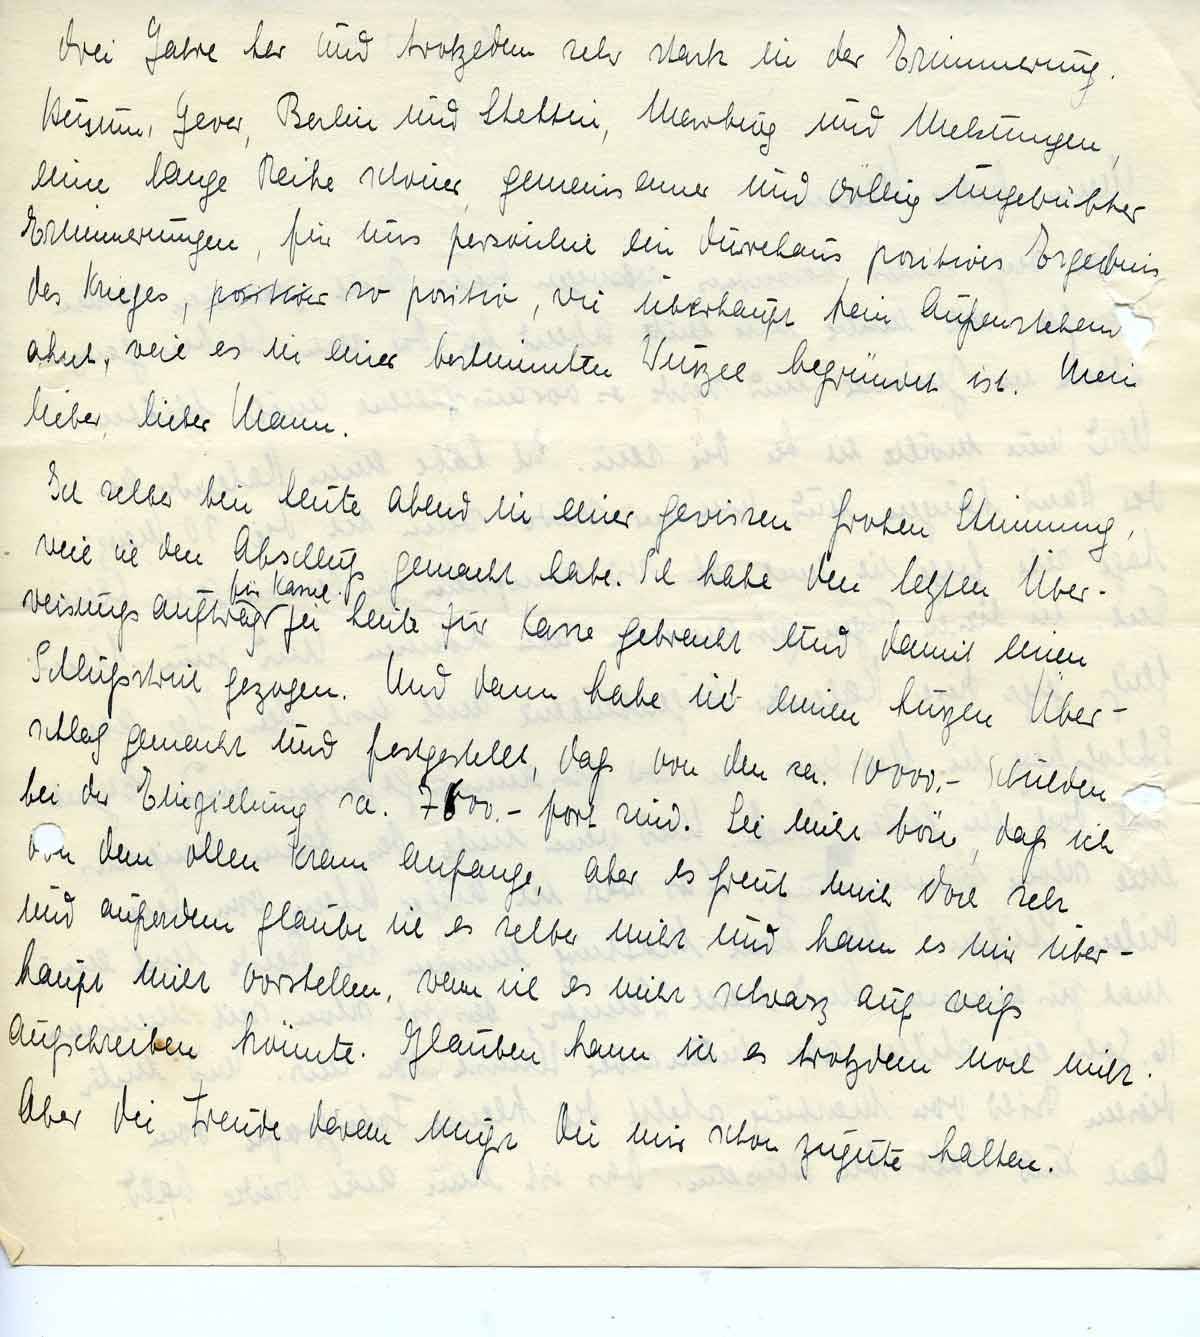 drei Jahre her und trotzdem sehr stark in der Erinnerung.
Husum, Jever, Berlin und Stettin, Marburg und Melsungen,
eine lange Reihe schöner, gemeinsamer und völlig ungetrübter
Erinnerungen, für uns persönlich ein durchaus positives Ergebnis
des Krieges, positiver so positiv, wie überhaupt kein Außenstehend
ahnt, weil es in einer bestimmten Wurzel begründet ist. Mein
lieber, lieber Mann.
Ich selber bin heute abend in einer gewissen frohen Stimmung,
weil ich den Abschluß gemacht habe. Ich habe den letzten Über-
für Kassel
weisungsauftrag heute zur Kasse gebracht und damit einen
Schlußstrich gezogen. Und dann habe ich einen kurzen Über-
schlag gemacht und festgestellt, daß von den ca. 10000.- Schulden
bei der Einziehung ca. 7600.- fort sind. Sei nicht böse, daß ich
von dem ollen Kram anfange, aber es freut mich doch sehr
und außerdem glaube ich es selber nicht und kann es mir über-
haupt nicht vorstellen, wenn ich es nicht schwarz auf weiß
aufschreiben könnte. Glauben kann ich es trotzdem noch nicht.
Aber die Freude daran mußt Du mir schon zugute halten.